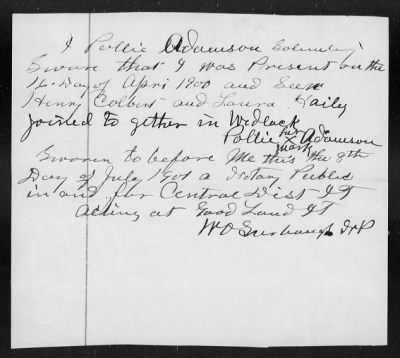 I Pollie Adamson Solemley
Sware that I was Present on the
16 Day of April 1900 and Seen
Henry Colbert and Laura Haily
joined to gether in Wedlock
Pollie her X mark Adamson
Sworin to before Me this the 8th
Day of July 1901 a Notary Public
in and for Central Dist I T
acting at Good Land I T
W O